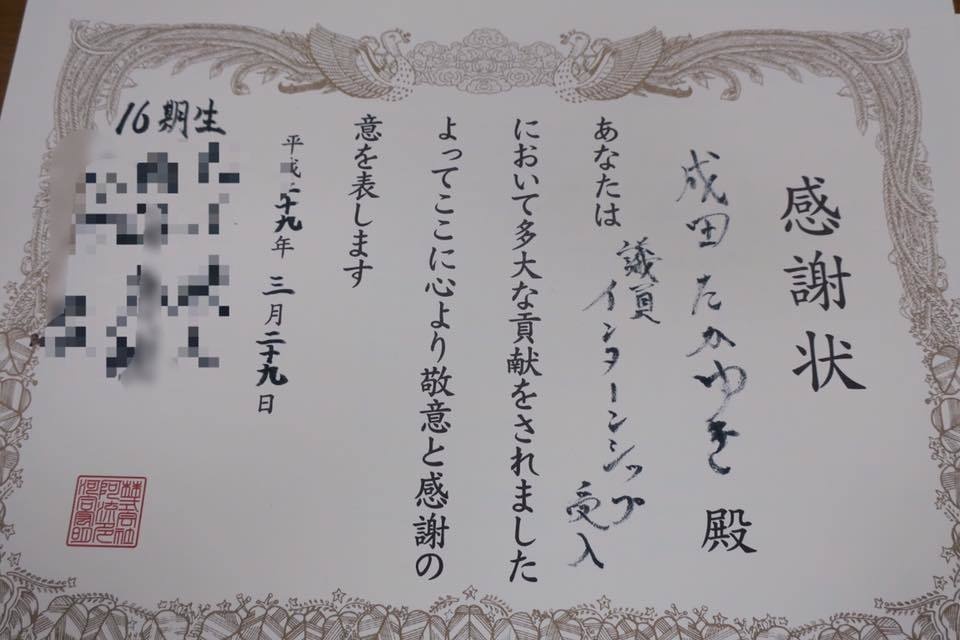 感謝状
成田たかゆき 殿
あなたは 議員インターンシップ受入
において多大な貢献をされました
よってここに心より敬意と感謝の
意を表します
平成二十九年 三月二十九日
16期生
株式会社